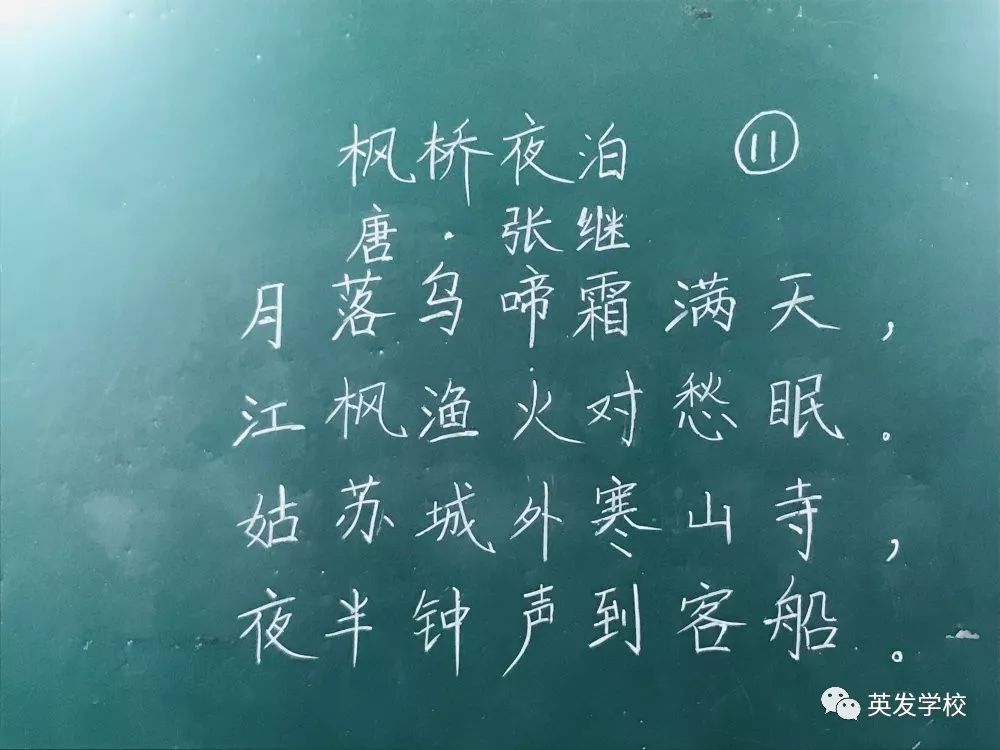 枫桥夜泊 ⑪
唐·张继
月落乌啼霜满天，
江枫渔火对愁眠.
姑苏城外寒山寺，
夜半钟声到客船。
英发学校